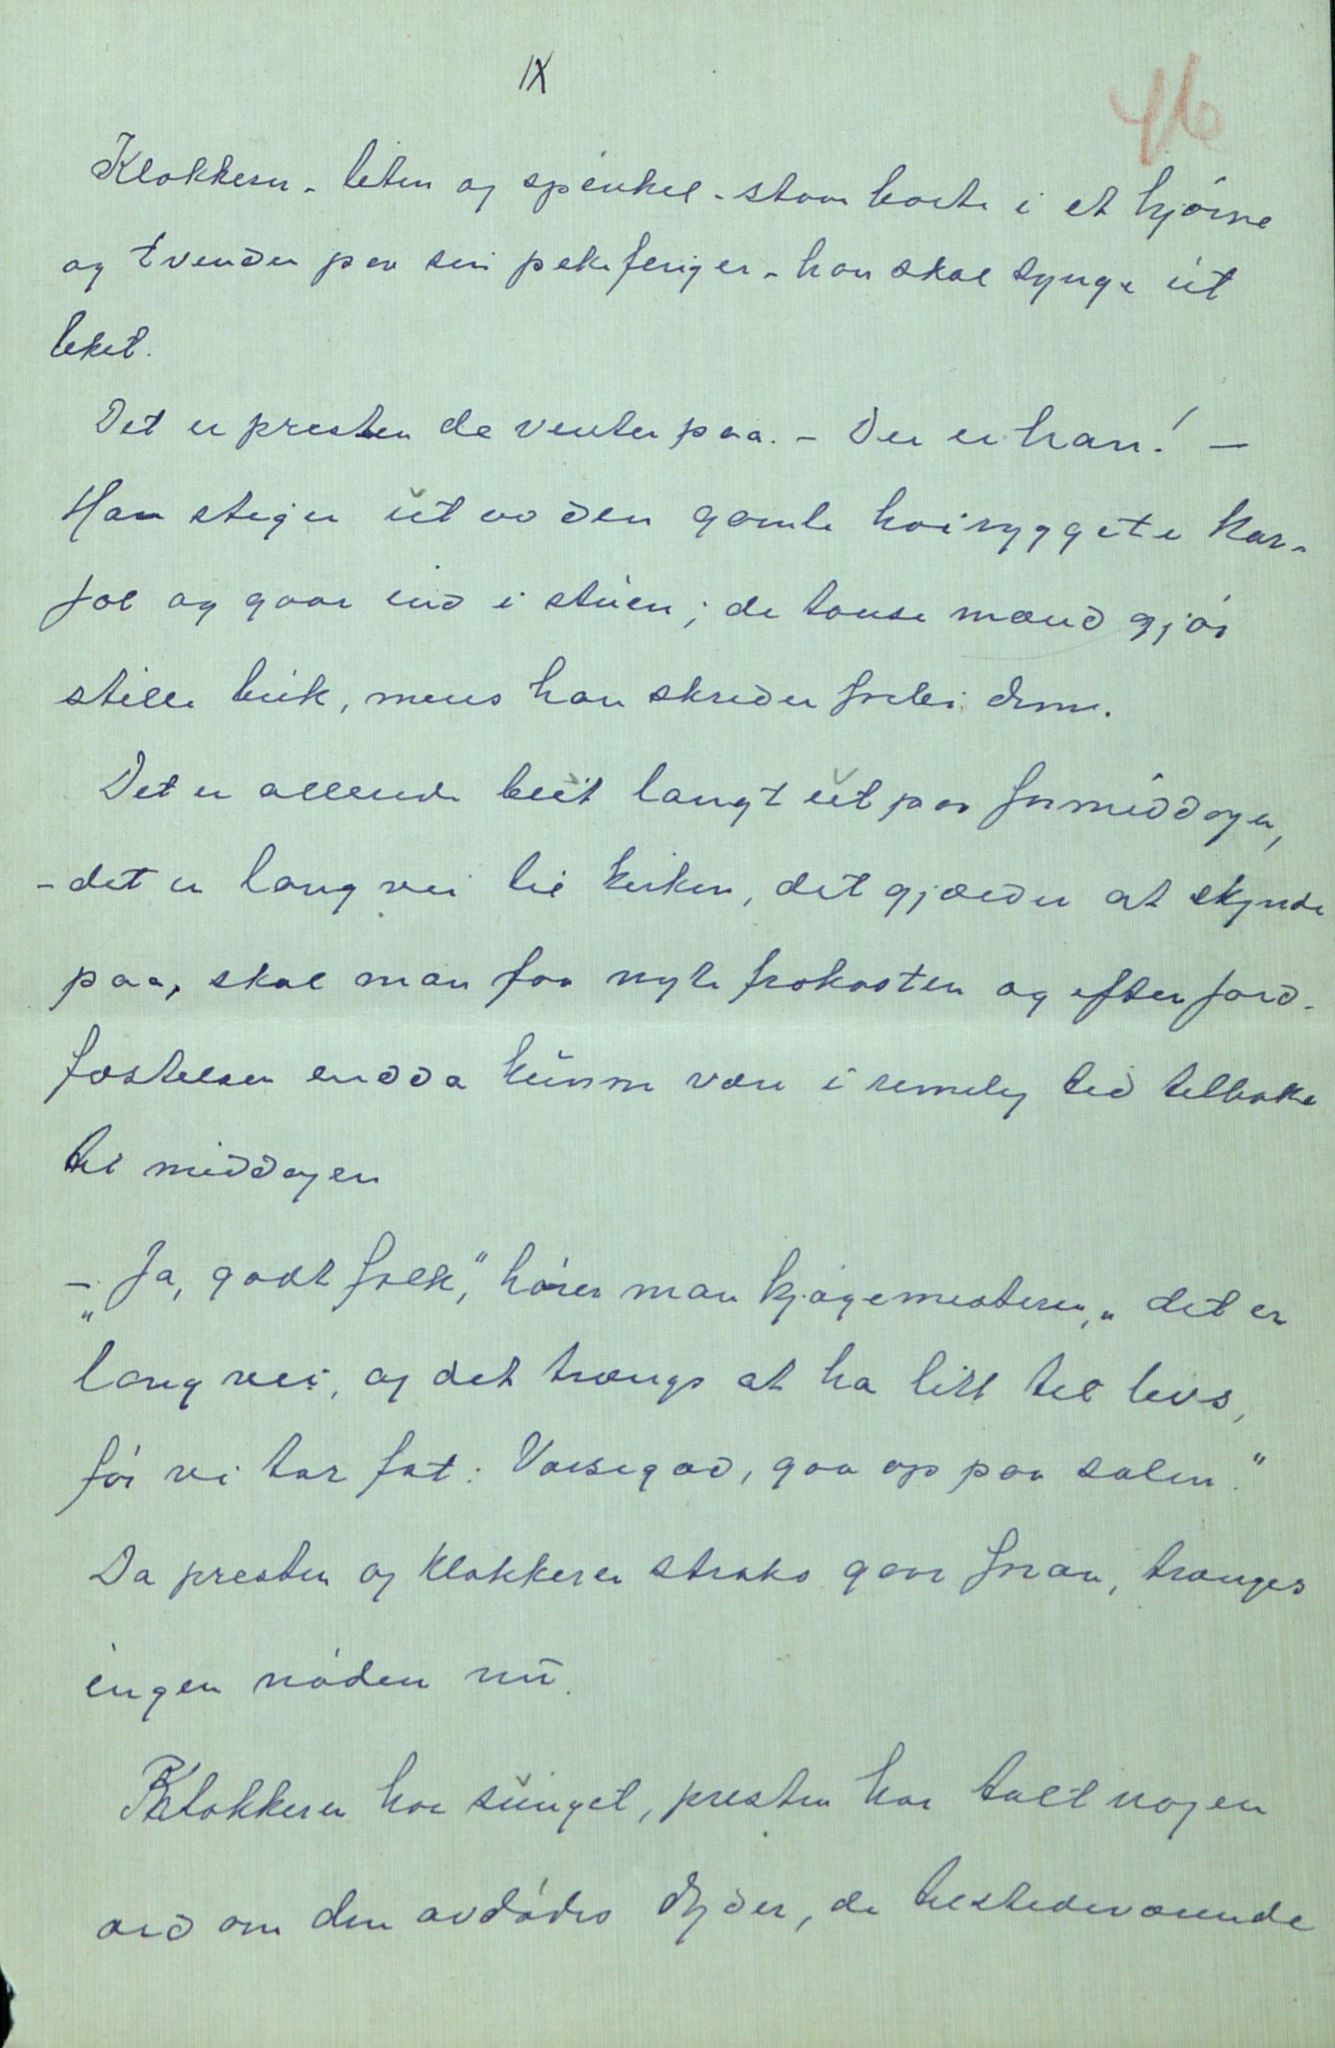 IX
46
Klokkeren - liten og spinkel - staar borte i et hjørne
og tvender paa sin pekefinger - han skal synge ut
liket.
Det er presten de venter paa. - Der er han! -
Han stiger ut av den gamle høiryggete kar-
jol og gaar ind i stuen; de tause mænd gjør
stille buk, mens han skrider forbi dem.
Det er allerede blit langt ut paa formiddagen,
- det er lang vei til kirken, det gjælder at skynde
paa, skal man faa nyte frokosten og efter jord-
fæstelsen endda kunne være i rimelig tid tilbake
til middagen
- „Ja, godt folk," hører man kjøgemesteren, „det er
lang vei, og det trængs at ha litt til livs,
før vi tar fat. Værsegod, gaa op paa salen."
Da presten og klokkeren straks gaar foran, trænges
ingen nøden nu.
Klokkeren har sunget, presten har talt nogen
ord om den avdødes dyder, de tilstedeværende